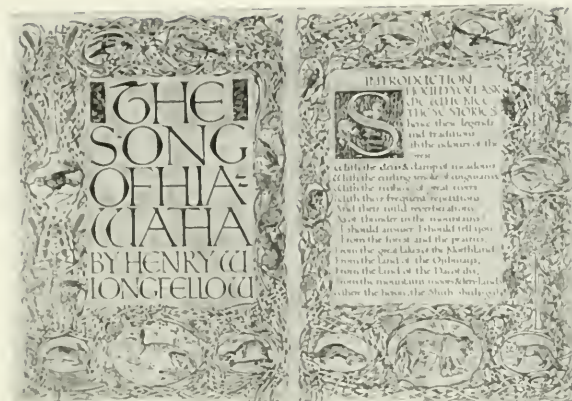 THE
SONG
OF HIA-
WATHA
BY HENRY W
LONGFELLOW
INTRODUCTION
SHOULD YOU ASK
ME WHENCE
THESE STORIES
hence these legends
and traditions
ith the odours of the
With the damp of meadows
With the curling smoke of wigwams
With the rushing of great rivers
With their frequent repetitions
And their wild reverberations
As of thunder in the mountains
I should answer I should tell you
From the forest and the prairies
From the great lakes of the Northland
From the land of the Ojibways
From the land of the Dacotahs
From the mountains moors & fen-land
Where the heron, the Shuh-shuh-gah